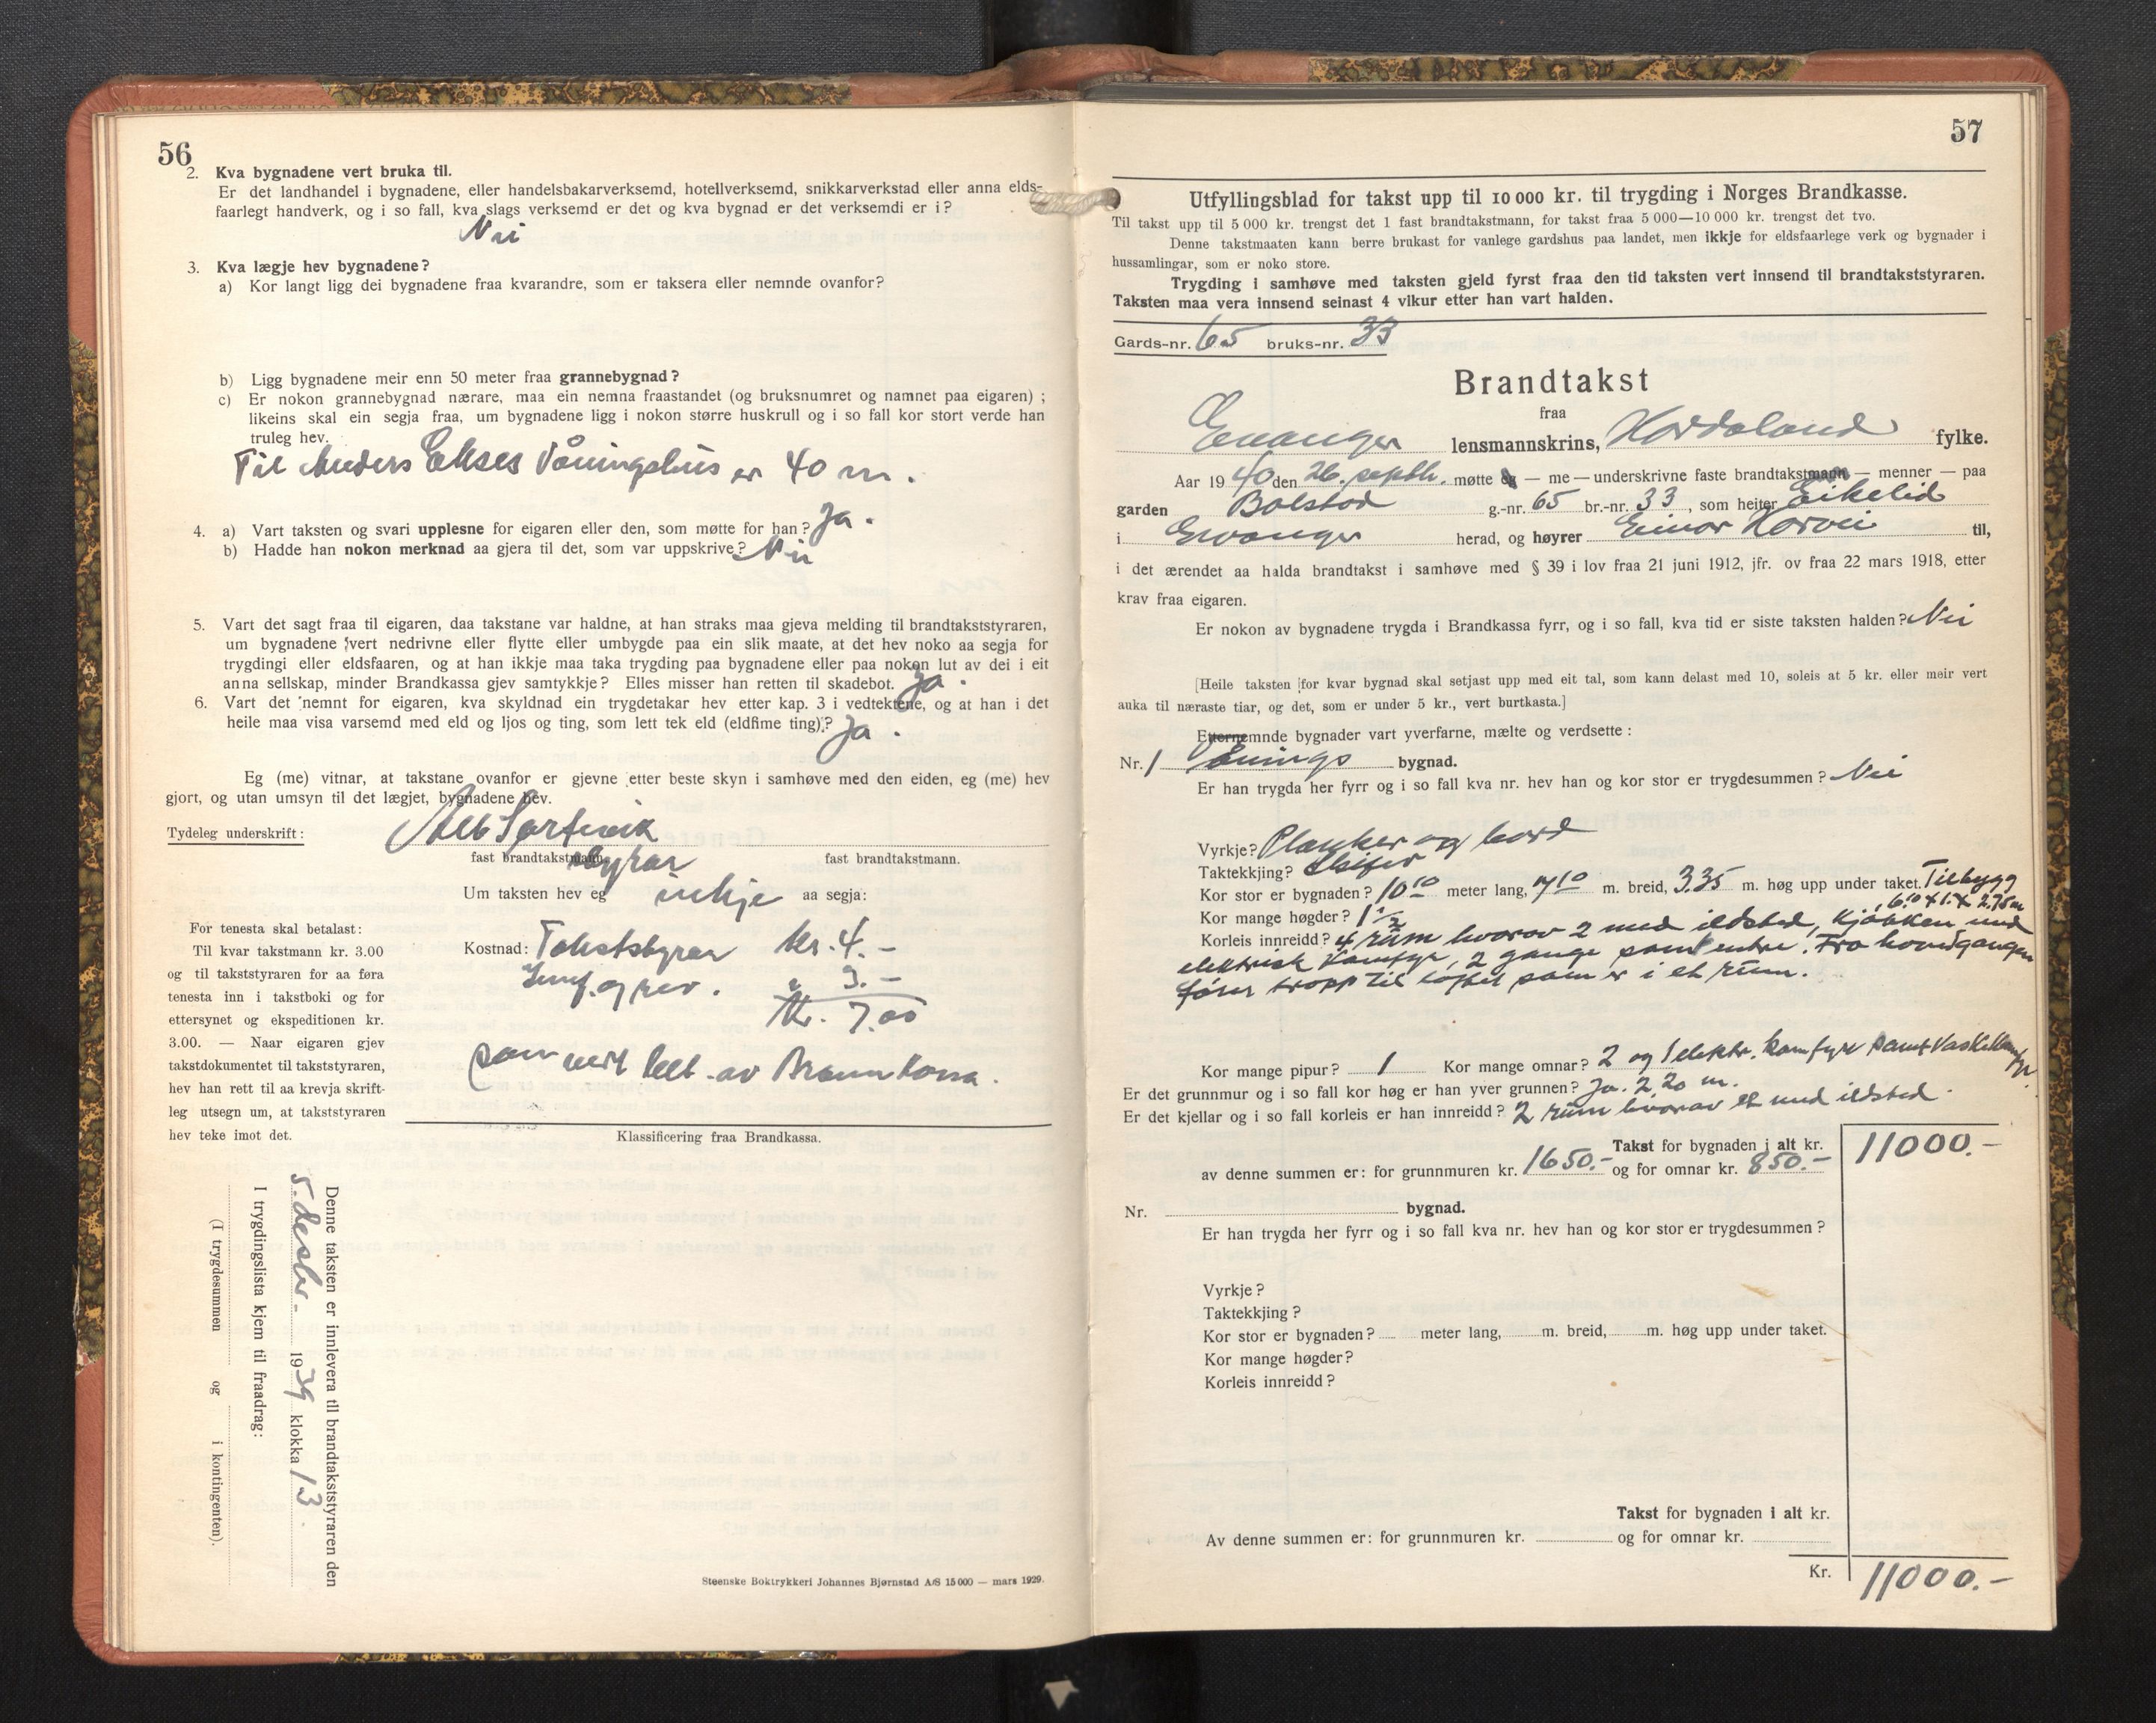 56
2. Kva bygnadene vert bruka til.
Er det landhandel i bygnadene, eller handelsbakarverksemd, hotellverksemd, snikkarverkstad eller anna elds-
faarlegt handverk, og i so fall, kva slags verksemd er det og kva bygnad er det verksemdi er i?
Nei
3. Kva lægje hev bygnadene?
a) Kor langt ligg dei bygnadene fraa kvarandre, som er taksera eller nemnde ovanfor?
b) Ligg bygnadene meir enn 50 meter fraa grannebygnad?
c) Er nokon grannebygnad nærare, maa ein nemna fraastandet (og bruksnumret og namnet paa eigaren);
likeins skal ein segja fraa, um bygnadene ligg i nokon større huskrull og i so fall kor stort verde han
truleg hev.
Til Anders Ekses Våningshus er 40 m.
4. a) Vart taksten og svari upplesne for eigaren eller den, som møtte for han? Ja.
b) Hadde han nokon merknad aa gjera til det, som var uppskrive? Nei
5. Vart det sagt fraa til eigaren, daa takstane var haldne, at han straks maa gjeva melding til brandtakststyraren,
um bygnadene vert nedrivne eller flytte eller umbygde paa ein slik maate, at det hev noko aa segja for
trygdingi eller eldsfaaren, og at han ikkje maa taka trygding paa bygnadene eller paa nokon lut av dei i eit
anna sellskap, minder Brandkassa gjev samtykkje? Elles misser han retten til skadebot. Ja.
6. Vart det nemnt for eigaren, kva skyldnad ein trygdetakar hev etter kap. 3 i vedtektene, og at han i det
heile maa visa varsemd med eld og ljos og ting, som lett tek eld (eldfime ting)? Ja.
Eg (me) vitnar, at takstane ovanfor er gjevne etter beste skyn i samhøve med den eiden, eg (me) hev
gjort, og utan umsyn til det lægjet, bygnadene hev.
Tydeleg underskrift:
fast brandtakstmann. styrar fast brandtakstmann.
Um taksten hev eg inkje aa segja:
For tenesta skal betalast:
Til kvar takstmann kr. 3.00
og til takststyraren for aa føra
tenesta inn i takstboki og for
ettersynet og ekspeditionen kr.
3.00. — Naar eigaren gjev
takstdokumentet til takststyraren,
hev han rett til aa krevja skrift-
leg utsegn um, at takststyraren
hev teke imot det.
Kostnad: Takststyrar kr. 4.-
Innf. og rev. " 3.-
Kr. 7.00
som vert bet. av Brannkassa.
Klassificering fraa Brandkassa.
Denne taksten er innlevera til brandtakststyraren den
5. desbr. 1939 klokka 13
I trygdingslista kjem til fraadrag:
(I trygdesummen og i kontingenten).
Steenske Boktrykkeri Johannes Bjørnstad A/S 15 000 — mars 1929.
57
Utfyllingsblad for takst upp til 10 000 kr. til trygding i Norges Brandkasse.
Til takst upp til 5 000 kr. trengst det 1 fast brandtakstmann, for takst fraa 5 000—10 000 kr. trengst det tvo.
Denne takstmaaten kann berre brukast for vanlege gardshus paa landet, men ikkje for eldsfaarlege verk og bygnader i
hussamlingar, som er noko store.
Trygding i samhøve med taksten gjeld fyrst fraa den tid taksten vert innsend til brandtakststyraren.
Taksten maa vera innsend seinast 4 vikur etter han vart halden.
Gards-nr. 65 bruks-nr. 33
Brandtakst
fraa
Evanger lensmannskrins, Hordaland fylke.
Aar 1940 den 26. septbr. møtte eg — me — underskrivne faste brandtakstmann — menner — paa
garden Bolstad g.-nr. 65 br.-nr. 33, som heiter Eikelid
i Evanger herad, og høyrer Einar Horvei til,
i det ærendet aa halda brandtakst i samhøve med § 39 i lov fraa 21 juni 1912, jfr. ov fraa 22 mars 1918, etter
krav fraa eigaren.
Er nokon av bygnadene trygda i Brandkassa fyrr, og i so fall, kva tid er siste taksten halden? Nei
[Heile taksten for kvar bygnad skal setjast upp med eit tal, som kann delast med 10, soleis at 5 kr. eller meir vert
auka til næraste tiar, og det, som er under 5 kr., vert burtkasta.]
Etternemnde bygnader vart yverfarne, mælte og verdsette:
Nr. 1 Vånings bygnad.
Er han trygda her fyrr og i so fall kva nr. hev han og kor stor er trygdesummen? Nei
Vyrkje? Planker og bord
Taktekkjing? Skifer
Kor stor er bygnaden? 10¹⁰ meter lang, 7¹⁰ m. breid, 3.35 m. høg upp under taket. Tilbygg
6.10 x 1. x 2.75 m
Kor mange høgder? 1 ½
Korleis innreidd? 4 rum hvorav 2 med ildsted, kjøkken med
elektrisk kamfyr, 2 gange samt entre. Fra hovedgangen
fører tropp til loftet som er i et rum.
Kor mange pipur? 1 Kor mange omnar? 2 og 1 elektr. kamfyr samt vaskekamfyr.
Er det grunnmur og i so fall kor høg er han yver grunnen? Ja. 2,20 m.
Er det kjellar og i so fall korleis er han innreidd? 2 rum hvorav et med ildsted.
Takst for bygnaden i alt kr. 11000.-
av denne summen er: for grunnmuren kr. 1650.- og for omnar kr. 850.-
Nr. bygnad.
Er han trygda her fyrr og i so fall kva nr. hev han og kor stor er trygdesummen?
Vyrkje?
Taktekkjing?
Kor stor er bygnaden? meter lang, m. breid, m. høg upp under taket.
Kor mange høgder?
Korleis innreidd?
Takst for bygnaden i alt kr.
Av denne summen er: for grunnmuren kr. og for omnar kr.
Kr. 11000.-